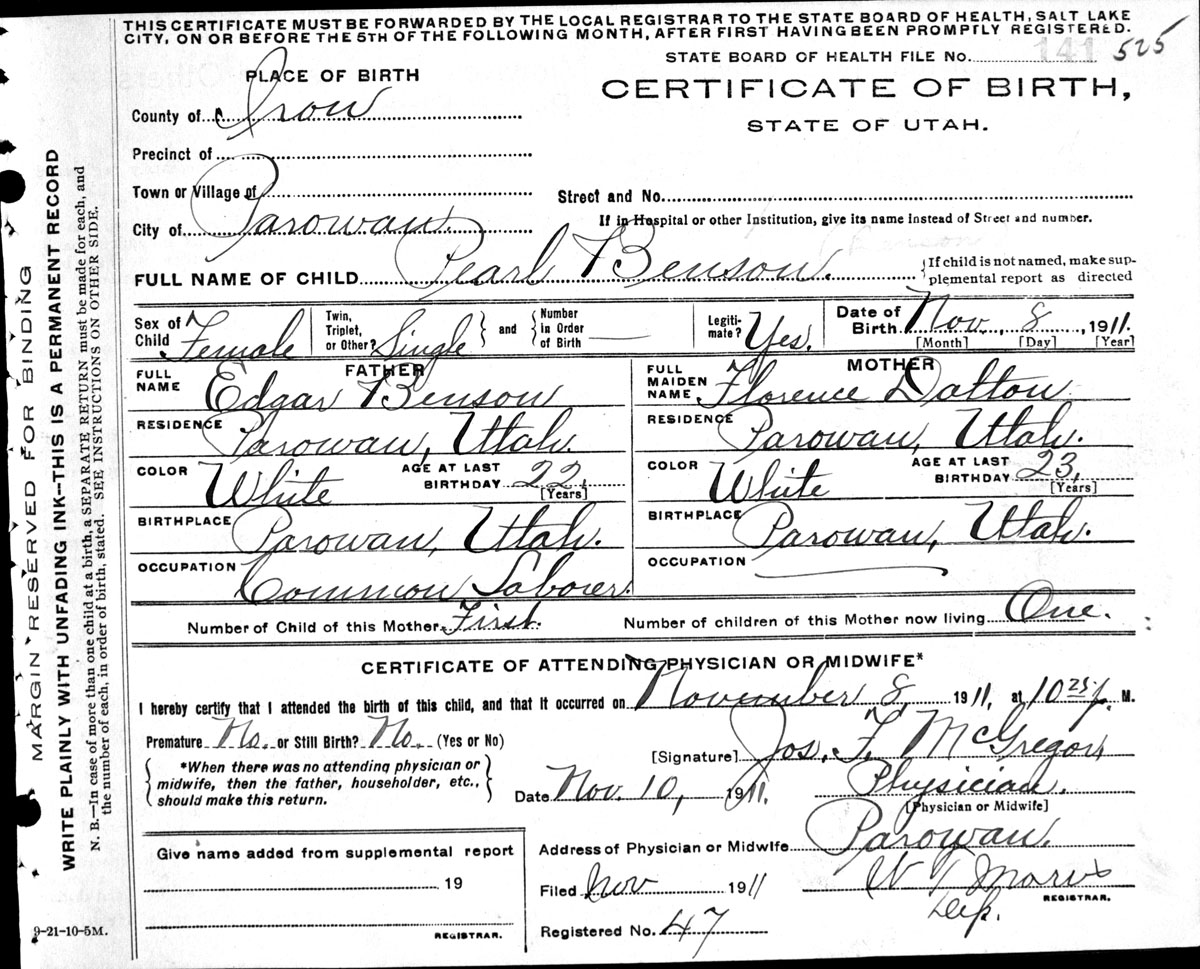 THIS CERTIFICATE MUST BE FORWARDED BY THE LOCAL REGISTRAR TO THE STATE BOARD OF HEALTH, SALT LAKE
CITY, ON OR BEFORE THE 5TH OF THE FOLLOWING MONTH, AFTER FIRST HAVING BEEN PROMPTLY REGISTERED.
STATE BOARD OF HEALTH FILE No. 141 525
PLACE OF BIRTH
CERTIFICATE OF BIRTH,
STATE OF UTAH.
County of Iron
Precinct of
Town or Village of
Street and No.
City of Parowan
If in Hospital or other Institution, give its name instead of Street and number.
FULL NAME OF CHILD Pearl Benson.
{If child is not named, make sup-
plemental report as directed
Sex of Child Female
Twin, Triplet, or Other? Single
and Number in Order of Birth —
Legiti-mate? Yes.
Date of Birth Nov., 8, 1911.
[Month] [Day] [Year]
FATHER
FULL NAME Edgar Benson
RESIDENCE Parowan, Utah.
COLOR White AGE AT LAST BIRTHDAY 22,
[Years]
BIRTHPLACE Parowan, Utah.
OCCUPATION Common Laborer.
MOTHER
FULL MAIDEN NAME Florence Dalton
RESIDENCE Parowan, Utah.
COLOR White AGE AT LAST BIRTHDAY 23,
[Years]
BIRTHPLACE Parowan, Utah.
OCCUPATION
Number of Child of this Mother First. Number of children of this Mother now living One.
CERTIFICATE OF ATTENDING PHYSICIAN OR MIDWIFE*
I hereby certify that I attended the birth of this child, and that it occurred on November 8, 1911, at 10 25 p. M.
Premature No. or Still Birth? No. (Yes or No)
[Signature] Jos. F. McGregor,
{*When there was no attending physician or
midwife, then the father, householder, etc.,
should make this return.}
Date Nov. 10, 1911. Physician.
[Physician or Midwife]
Give name added from supplemental report
19
REGISTRAR.
Address of Physician or Midwife Parowan.
Filed Nov 1911
REGISTRAR.
Dep.
Registered No. 47
9-21-10-5M.
MARGIN RESERVED FOR BINDING
WRITE PLAINLY WITH UNFADING INK—THIS IS A PERMANENT RECORD
N. B.—In case of more than one child at a birth, a SEPARATE RETURN must be made for each, and
the number of each, in order of birth, stated. SEE INSTRUCTIONS ON OTHER SIDE.